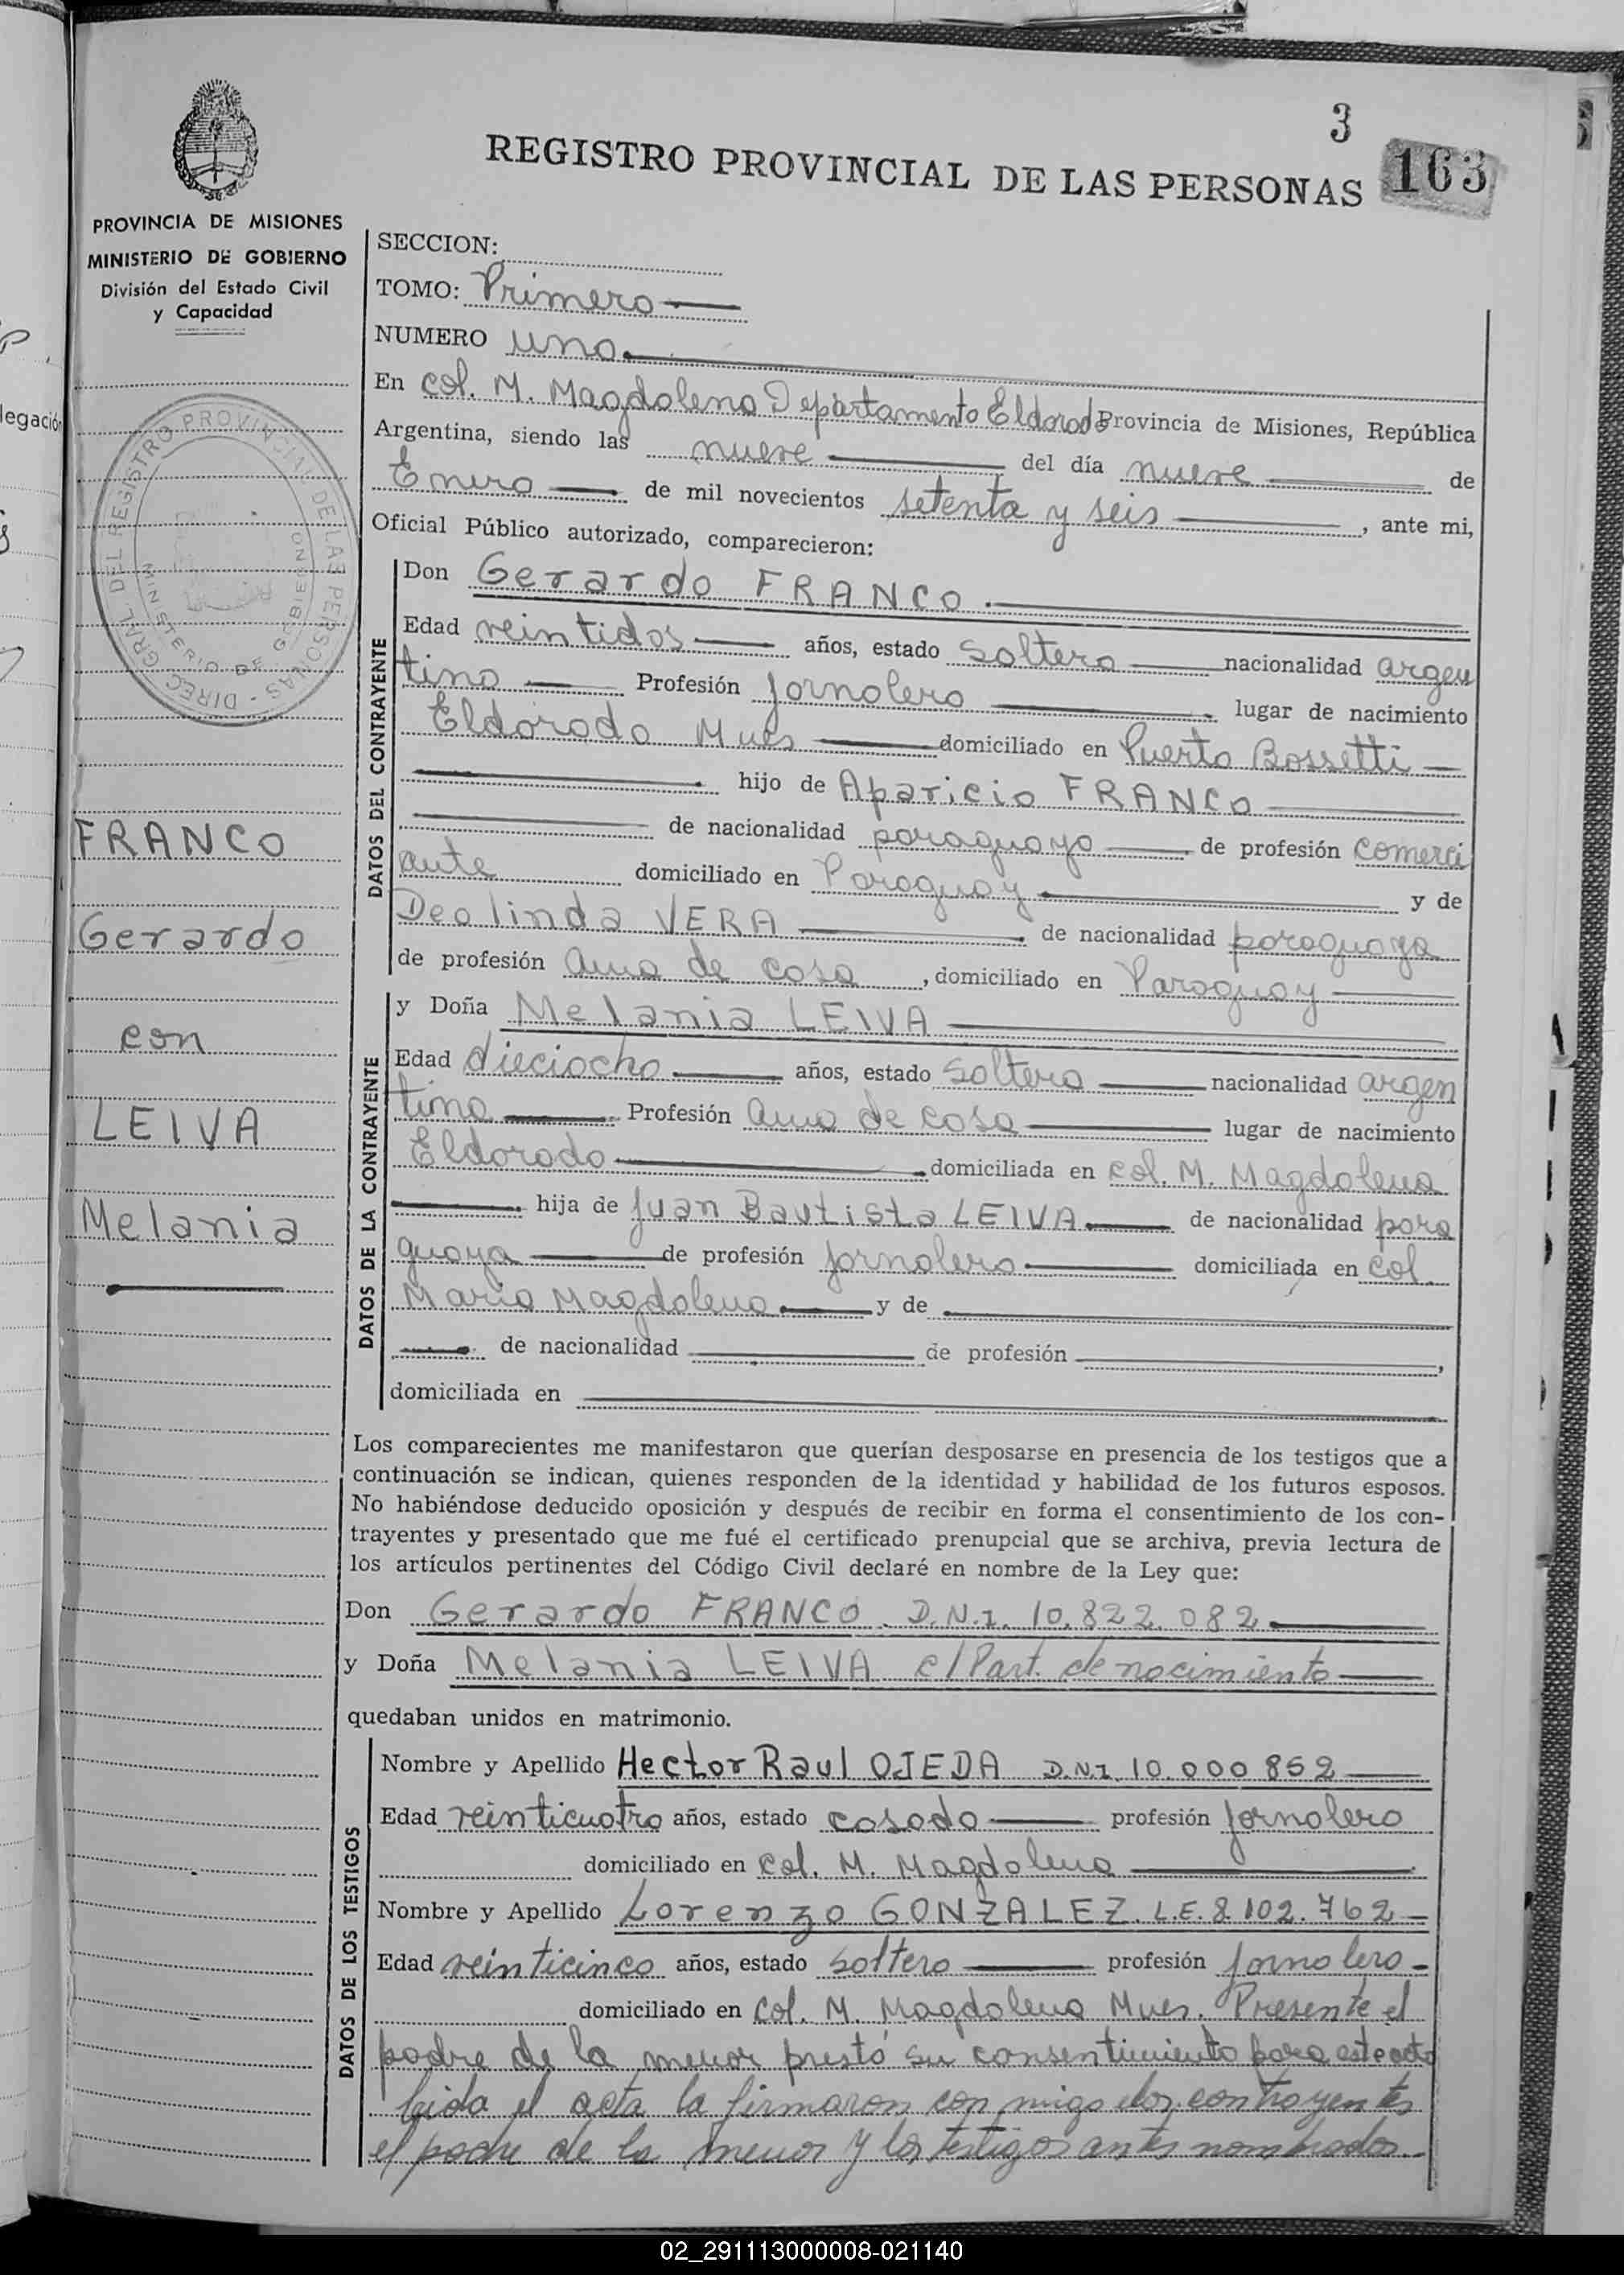 3
163
REGISTRO PROVINCIAL DE LAS PERSONAS
PROVINCIA DE MISIONES
MINISTERIO DE GOBIERNO
División del Estado Civil
y Capacidad
legación
DIREC. GRAL. DEL REGISTRO PROVINCIAL DE LAS PERSONAS
MINISTERIO DE GOBIERNO
FRANCO
Gerardo
con
LEIVA
Melania
SECCION:
TOMO: Primero
NUMERO uno
En col. M. Magdalena Departamento Eldorado Provincia de Misiones, República
Argentina, siendo las nueve del día nueve de
Enero de mil novecientos setenta y seis, ante mi,
Oficial Público autorizado, comparecieron:
DATOS DEL CONTRAYENTE
Don Gerardo FRANCO
Edad veintidos años, estado soltero nacionalidad argen
tina Profesión Jornalero lugar de nacimiento
Eldorado Mnes domiciliado en Puerto Bossetti
hijo de Aparicio FRANCO
de nacionalidad paraguayo de profesión comerci
ante domiciliado en Paraguay y de
Deolinda VERA de nacionalidad paraguaya
de profesión ama de casa, domiciliado en Paraguay
DATOS DE LA CONTRAYENTE
y Doña Melania LEIVA
Edad dieciocho años, estado soltera nacionalidad argen
tina Profesión ama de casa lugar de nacimiento
Eldorado domiciliada en col. M. Magdalena
hija de Juan Bautista LEIVA de nacionalidad para
guaya de profesión jornalero domiciliada en col.
María Magdalena y de
de nacionalidad de profesión ,
domiciliada en
Los comparecientes me manifestaron que querían desposarse en presencia de los testigos que a
continuación se indican, quienes responden de la identidad y habilidad de los futuros esposos.
No habiéndose deducido oposición y después de recibir en forma el consentimiento de los con-
trayentes y presentado que me fué el certificado prenupcial que se archiva, previa lectura de
los artículos pertinentes del Código Civil declaré en nombre de la Ley que:
Don Gerardo FRANCO. D.N.I. 10.822.082
y Doña Melania LEIVA c/Part. de nacimiento
quedaban unidos en matrimonio.
DATOS DE LOS TESTIGOS
Nombre y Apellido Hector Raul OJEDA D.N.I. 10.000 852
Edad veinticuatro años, estado casado profesión Jornalero
domiciliado en Col. M. Magdalena
Nombre y Apellido Lorenzo GONZALEZ. L.E. 8.102.762
Edad veinticinco años, estado soltero profesión Jornalero
domiciliado en Col. M. Magdalena Mnes. Presente el
padre de la menor prestó su consentimiento para este acto
leida el acta la firmaron con migo los contrayentes
el padre de la menor y los testigos antes nombrados.
02_291113000008-021140